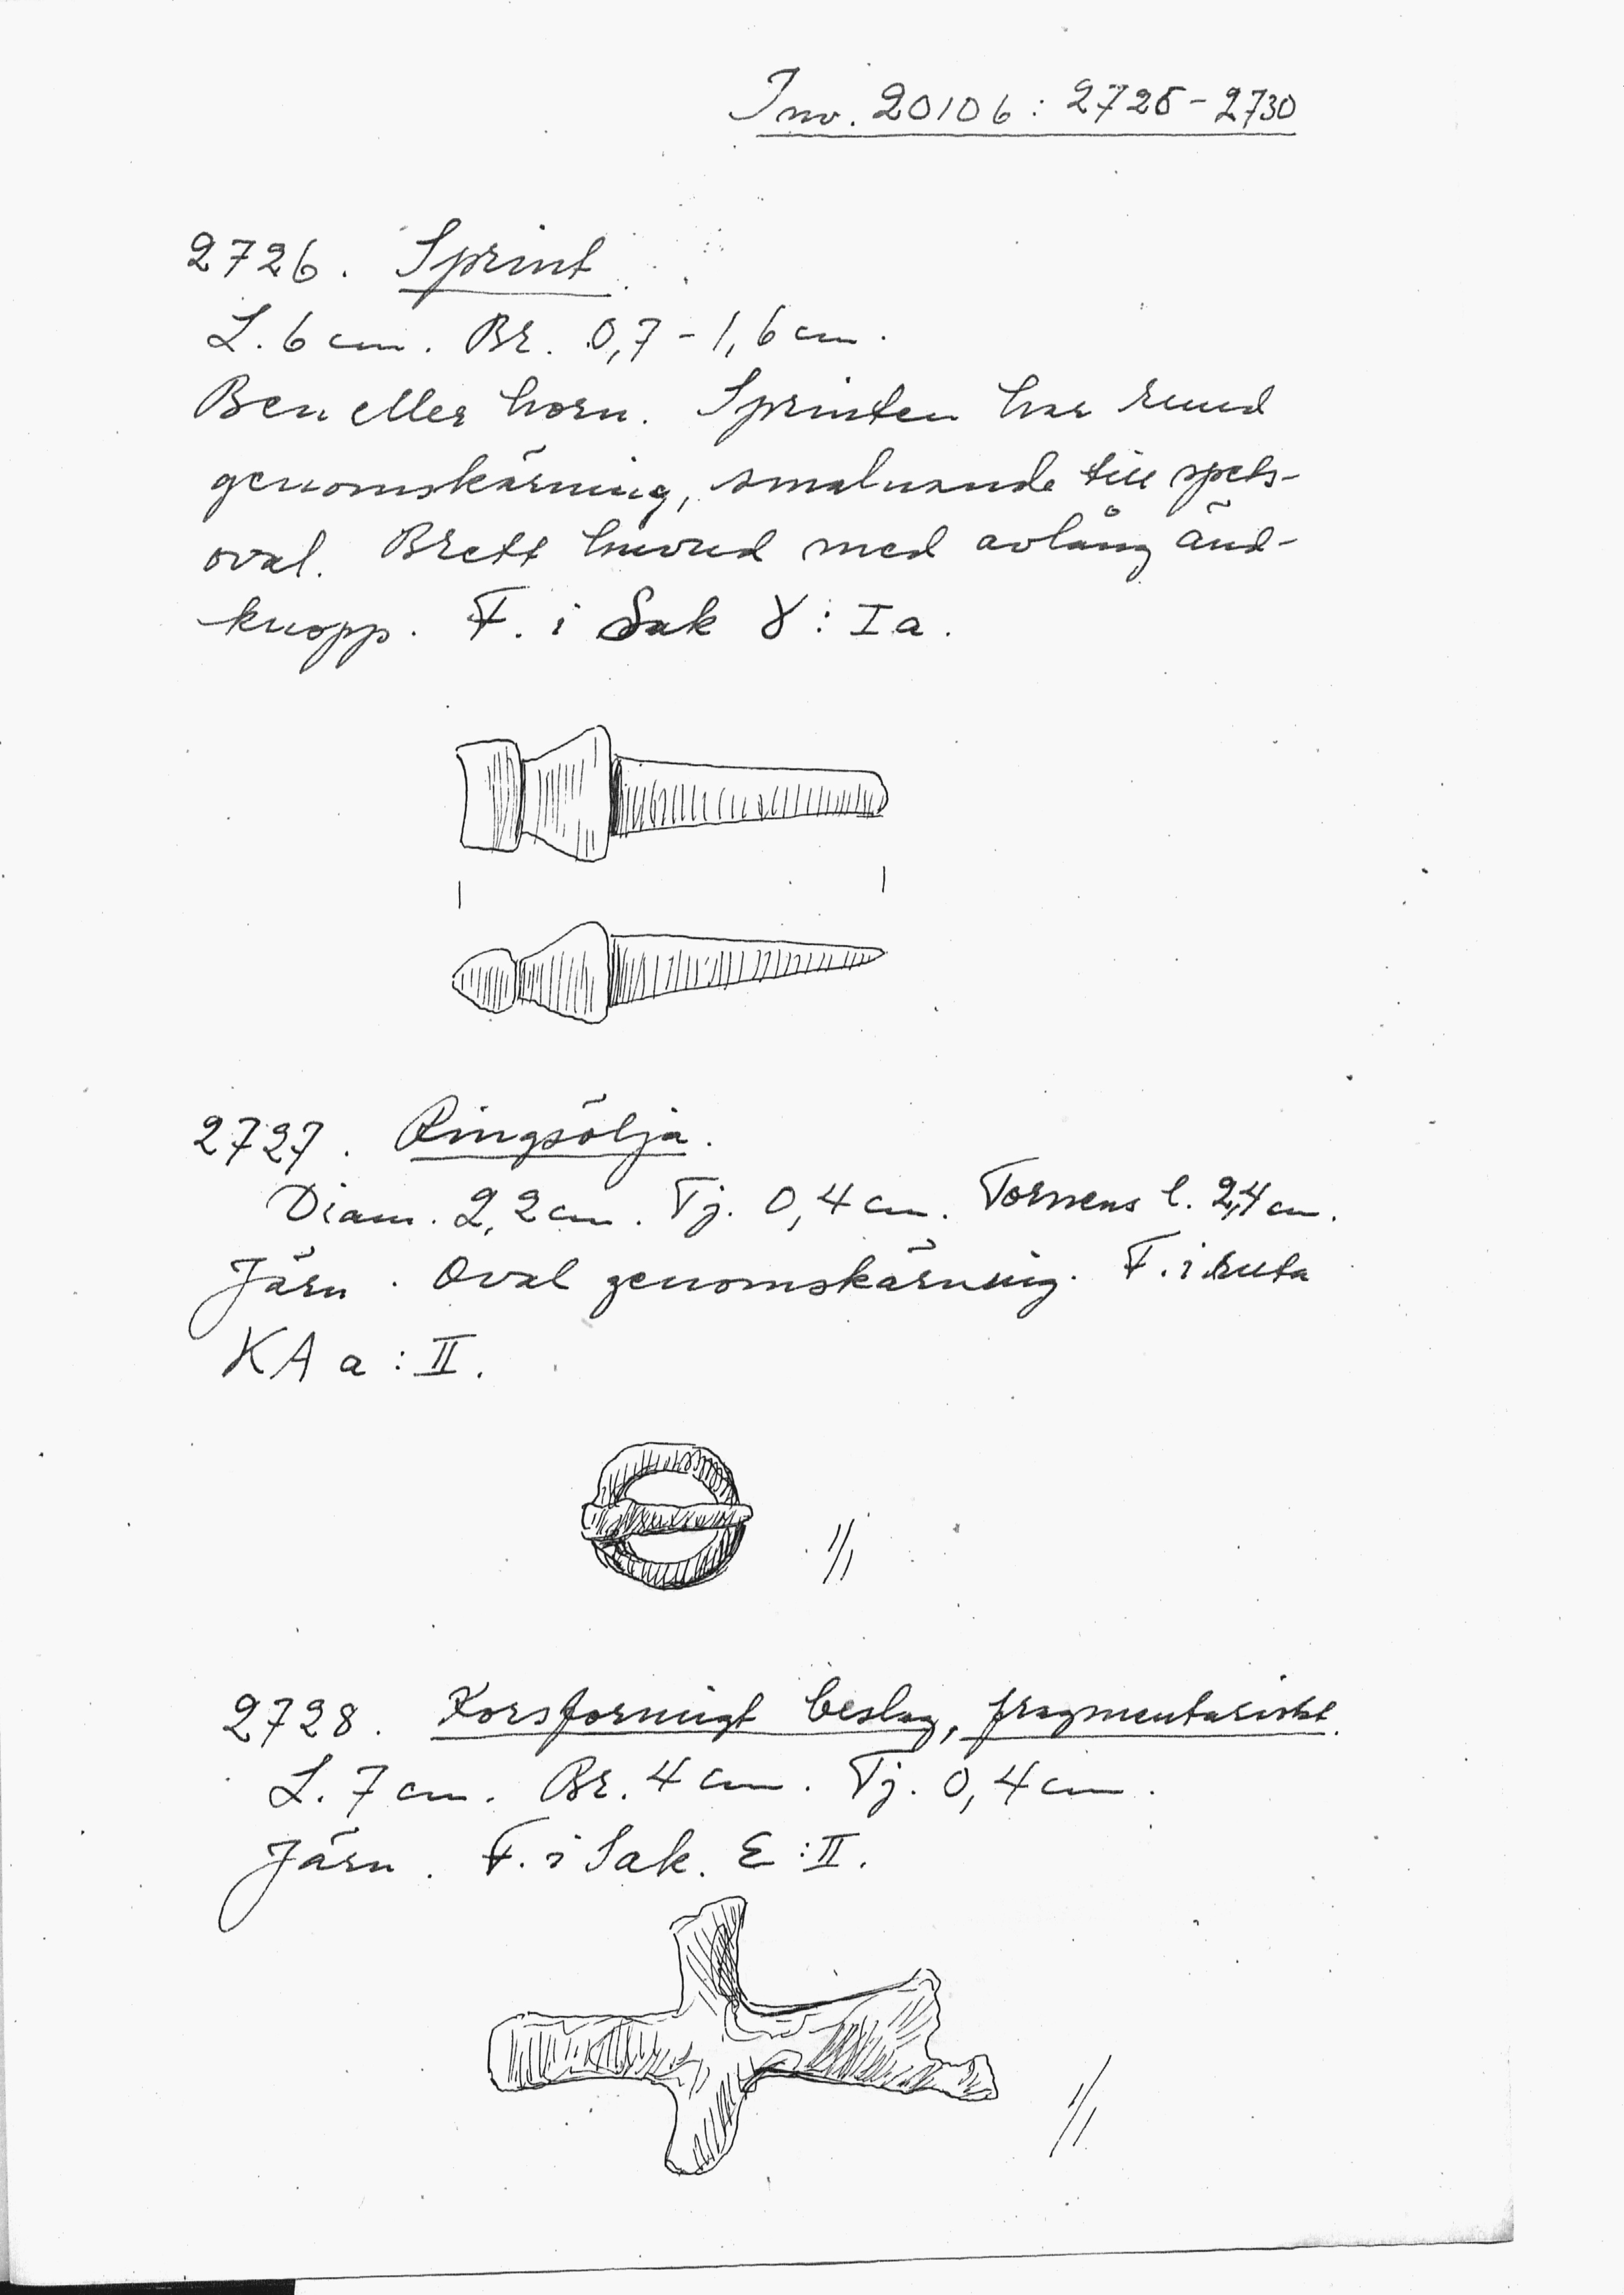 Inv. 20106: 2725-2730
2726. Sprint.
L. 6 cm. Br. 0,7-1,6 cm.
Ben eller horn. Sprinten har rund
genomskärning, smalnande till spets-
oval. Brett huvud med avlång änd-
knopp. F. i Sak γ: I a.
2727. Ringsölja.
Diam. 2,2 cm. Tj. 0,4 cm. Tornens l. 2,4 cm.
Järn. Oval genomskärning. F. i ruta
KA a: II.
1/1
2728. Korsformigt beslag, fragmentariskt.
L. 7 cm. Br. 4 cm. Tj. 0,4 cm.
Järn. F. i Sak. E: II.
1/1